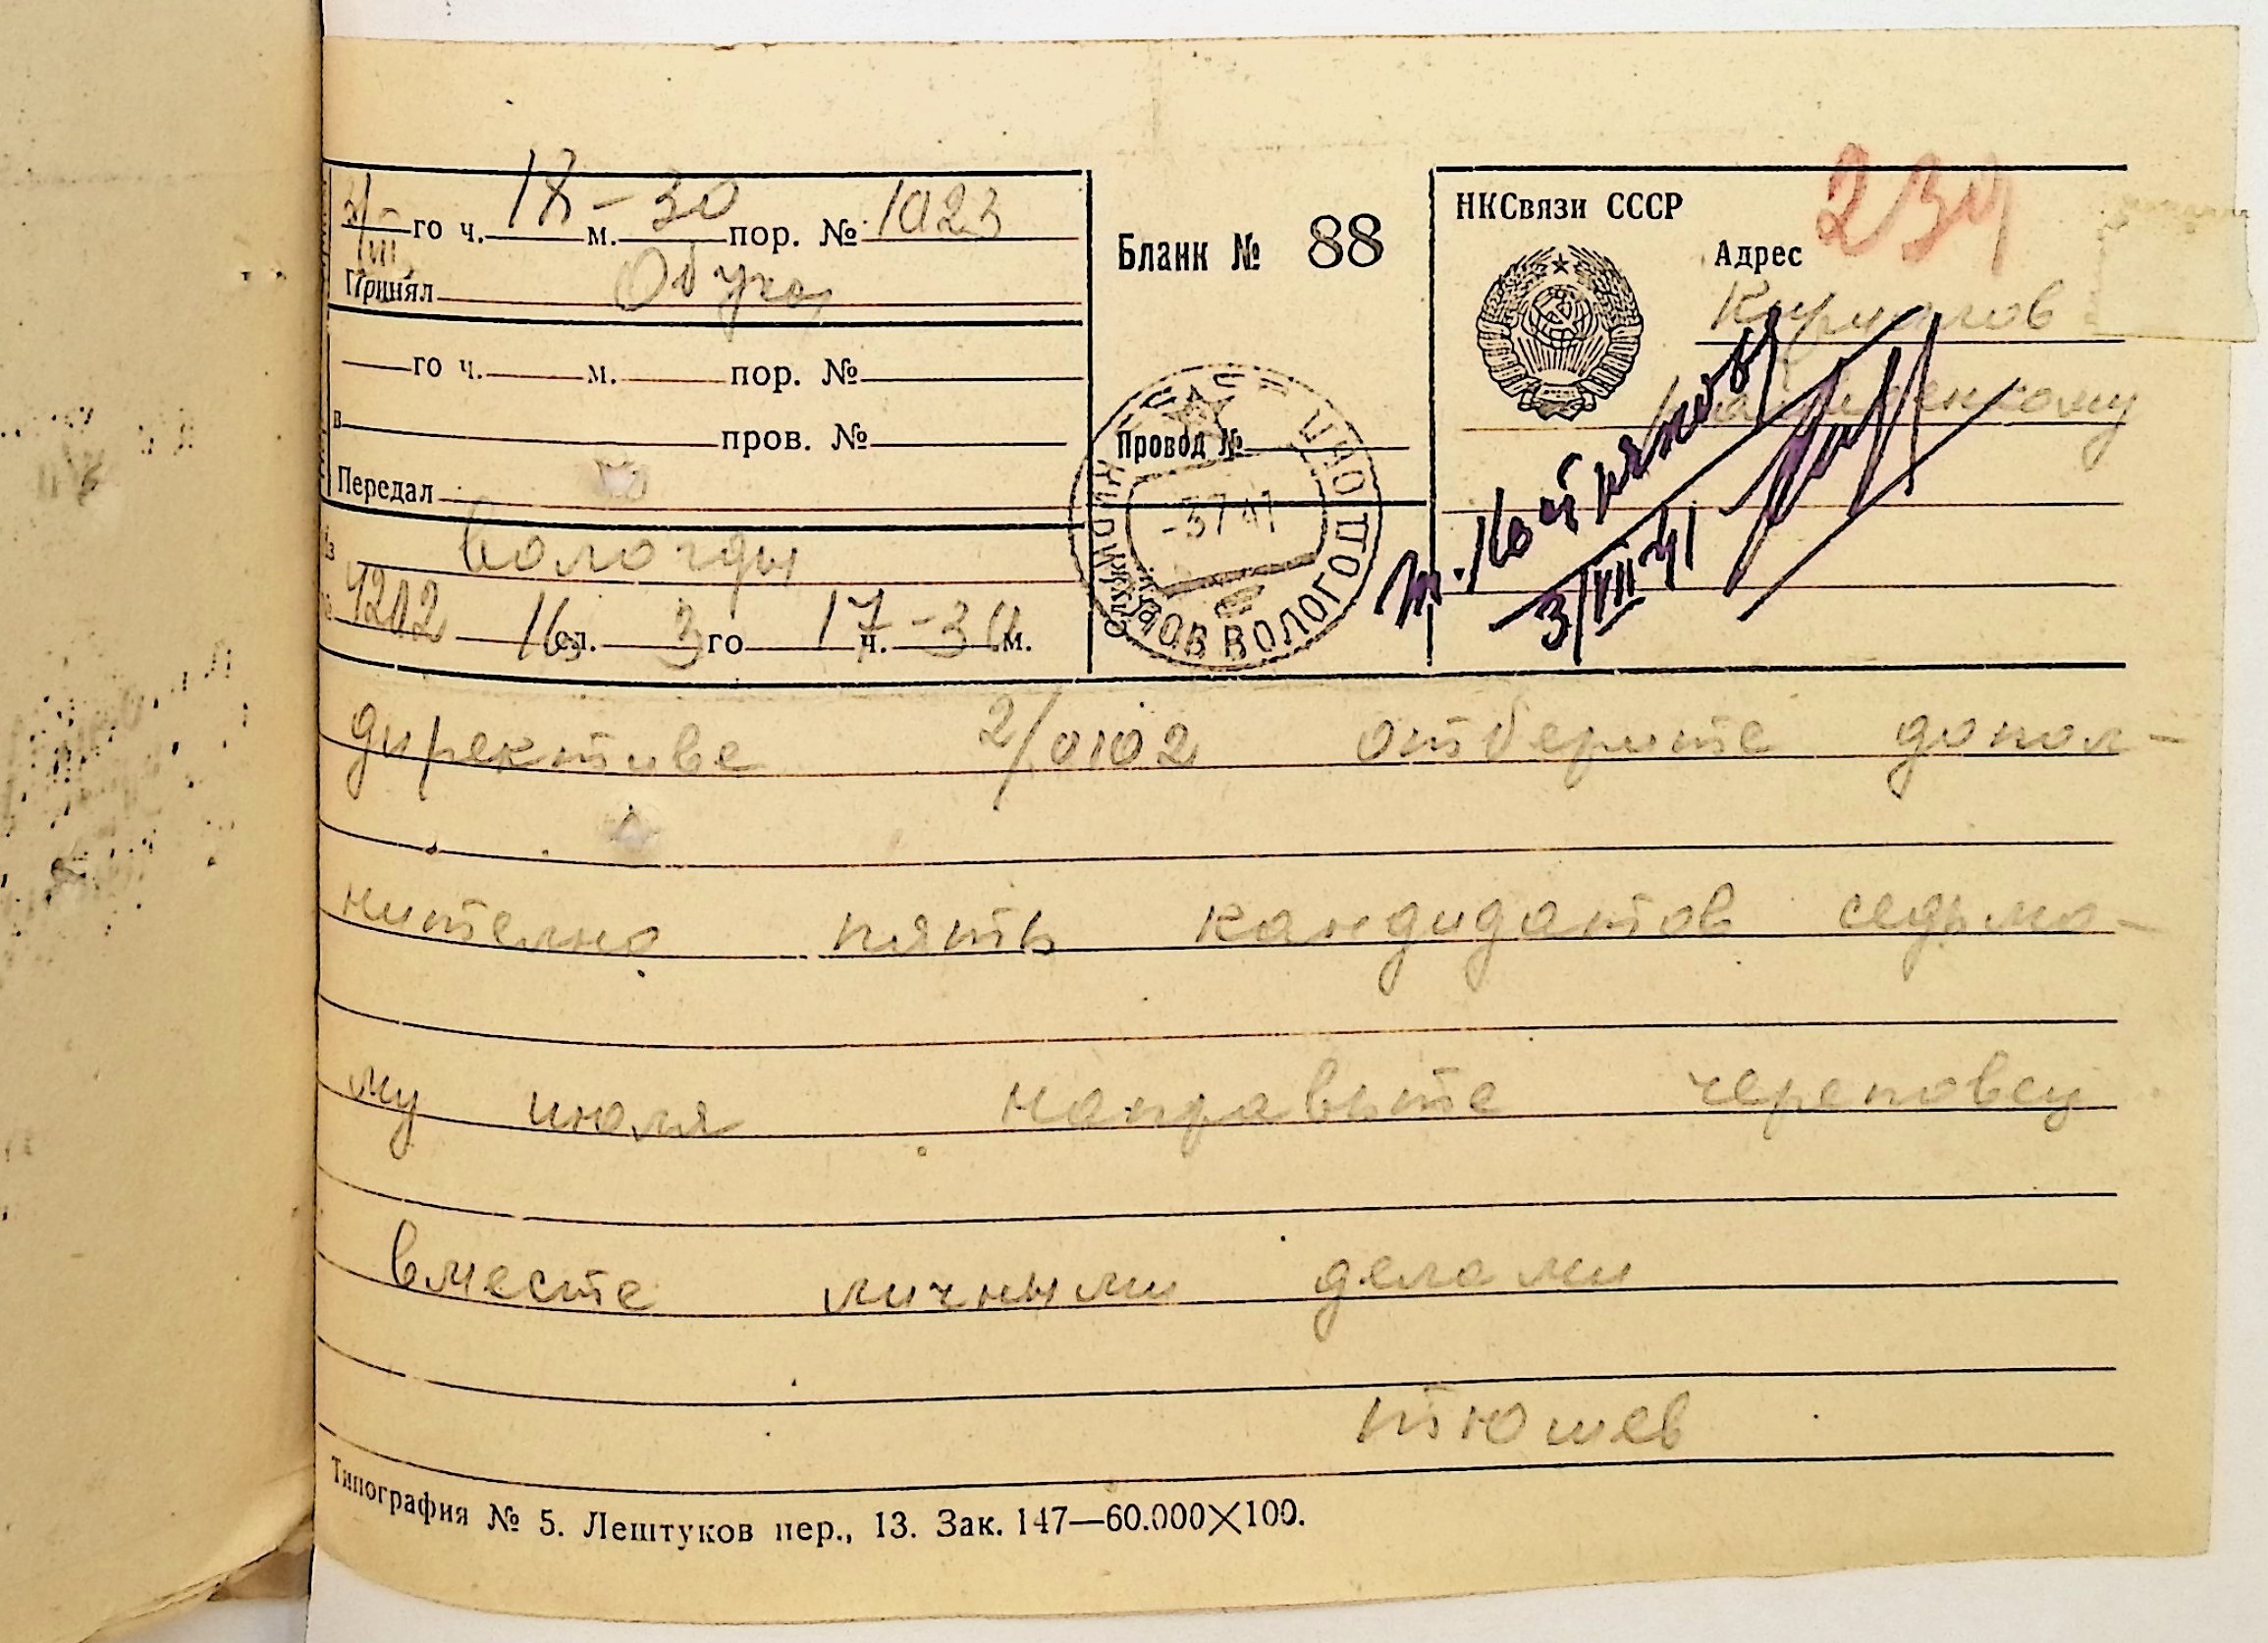 3/VII го ч. 18-30 м. пор. № 1023
Принял
го ч. м. пор. №
в пров. №
Передал
Из Вологды
№ 4202 16 сл. 3 го 17 ч. -30 м.
Бланк № 88
Провод №
НКСвязи СССР
234
Адрес
Кириллов
3/VII 41
-3 7 41
директиве 2/0102 отберите допол-
нительно пять кандидатов седьмо-
му июля направьте череповец
вместе личными делами
тюшев
Типография № 5. Лештуков пер., 13. Зак. 147—60.000×100.